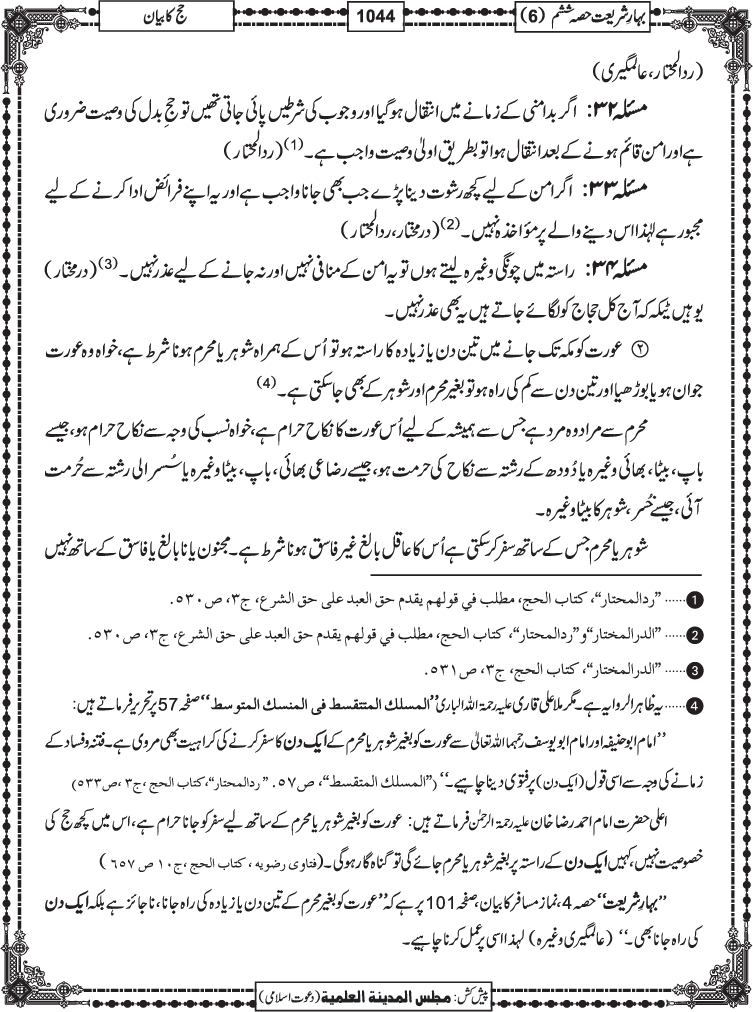 بہارِ شریعت حصہ ششم (6)
1044
حج کا بیان
(ردالمحتار، عالمگیری)
مسئلہ ۳۲: اگر بدامنی کے زمانے میں انتقال ہوگیا اور وجوب کی شرطیں پائی جاتی تھیں تو حجِ بدل کی وصیت ضروری
ہے اور امن قائم ہونے کے بعد انتقال ہوا تو بطریق اولیٰ وصیت واجب ہے۔(1) (ردالمحتار)
مسئلہ ۳۳: اگر امن کے لیے کچھ رشوت دینا پڑے جب بھی جانا واجب ہے اور یہ اپنے فرائض ادا کرنے کے لیے
مجبور ہے لہٰذا اس دینے والے پر مؤاخذہ نہیں۔(2) (درمختار، ردالمحتار)
مسئلہ ۳۴: راستہ میں چونگی وغیرہ لیتے ہوں تو یہ امن کے منافی نہیں اور نہ جانے کے لیے عذر نہیں۔(3) (درمختار)
یوہیں ٹیکہ کہ آج کل حجاج کو لگائے جاتے ہیں یہ بھی عذر نہیں۔
② عورت کو مکہ تک جانے میں تین دن یا زیادہ کا راستہ ہو تو اُس کے ہمراہ شوہر یا محرم ہونا شرط ہے، خواہ وہ عورت
جوان ہو یا بوڑھیا اور تین دن سے کم کی راہ ہو تو بغیر محرم اور شوہر کے بھی جاسکتی ہے۔(4)
محرم سے مراد وہ مرد ہے جس سے ہمیشہ کے لیے اُس عورت کا نکاح حرام ہے، خواہ نسب کی وجہ سے نکاح حرام ہو، جیسے
باپ، بیٹا، بھائی وغیرہ یا دُودھ کے رشتہ سے نکاح کی حرمت ہو، جیسے رضاعی بھائی، باپ، بیٹا وغیرہ یا سُسرالی رشتہ سے حُرمت
آئی، جیسے خُسر، شوہر کا بیٹا وغیرہ۔
شوہر یا محرم جس کے ساتھ سفر کرسکتی ہے اُس کا عاقل بالغ غیر فاسق ہونا شرط ہے۔ مجنون یا نابالغ یا فاسق کے ساتھ نہیں
1 ...... ”ردالمحتار“، کتاب الحج، مطلب في قولهم يقدم حق العبد على حق الشرع، ج۳، ص۵۳۰.
2 ...... ”الدرالمختار“ و”ردالمحتار“، کتاب الحج، مطلب في قولهم يقدم حق العبد على حق الشرع، ج۳، ص۵۳۰.
3 ...... ”الدرالمختار“، کتاب الحج، ج۳، ص۵۳۱.
4 ...... یہ ظاہر الروایہ ہے۔ مگر ملا علی قاری علیہ رحمۃ اللہ الباری ”المسلك المتقسط فى المنسك المتوسط“ صفحہ 57 پر تحریر فرماتے ہیں:
”امام ابوحنیفہ اور امام ابو یوسف رحمہما اللہ تعالیٰ سے عورت کو بغیر شوہر یا محرم کے ایک دن کا سفر کرنے کی کراہیت بھی مروی ہے۔ فتنہ و فساد کے
زمانے کی وجہ سے اسی قول (ایک دن) پر فتوی دینا چاہیے۔“ (”المسلك المتقسط“، ص۵۷. ”ردالمحتار“، کتاب الحج، ج۳، ص۵۳۳)
اعلیٰ حضرت امام احمد رضا خان علیہ رحمۃ الرحمٰن فرماتے ہیں: عورت کو بغیر شوہر یا محرم کے ساتھ لیے سفر کو جانا حرام ہے، اس میں کچھ حج کی
خصوصیت نہیں، کہیں ایک دن کے راستہ پر بغیر شوہر یا محرم جائے گی تو گناہ گار ہوگی۔ (فتاوی رضویہ، کتاب الحج، ج۱۰ ص ۶۵۷)
”بہارِ شریعت“ حصہ 4، نماز مسافر کا بیان، صفحہ 101 پر ہے کہ ”عورت کو بغیر محرم کے تین دن یا زیادہ کی راہ جانا، ناجائز ہے بلکہ ایک دن
کی راہ جانا بھی۔“ (عالمگیری وغیرہ) لہٰذا اسی پر عمل کرنا چاہیے۔
پیش کش: مجلس المدينة العلمية (دعوت اسلامی)